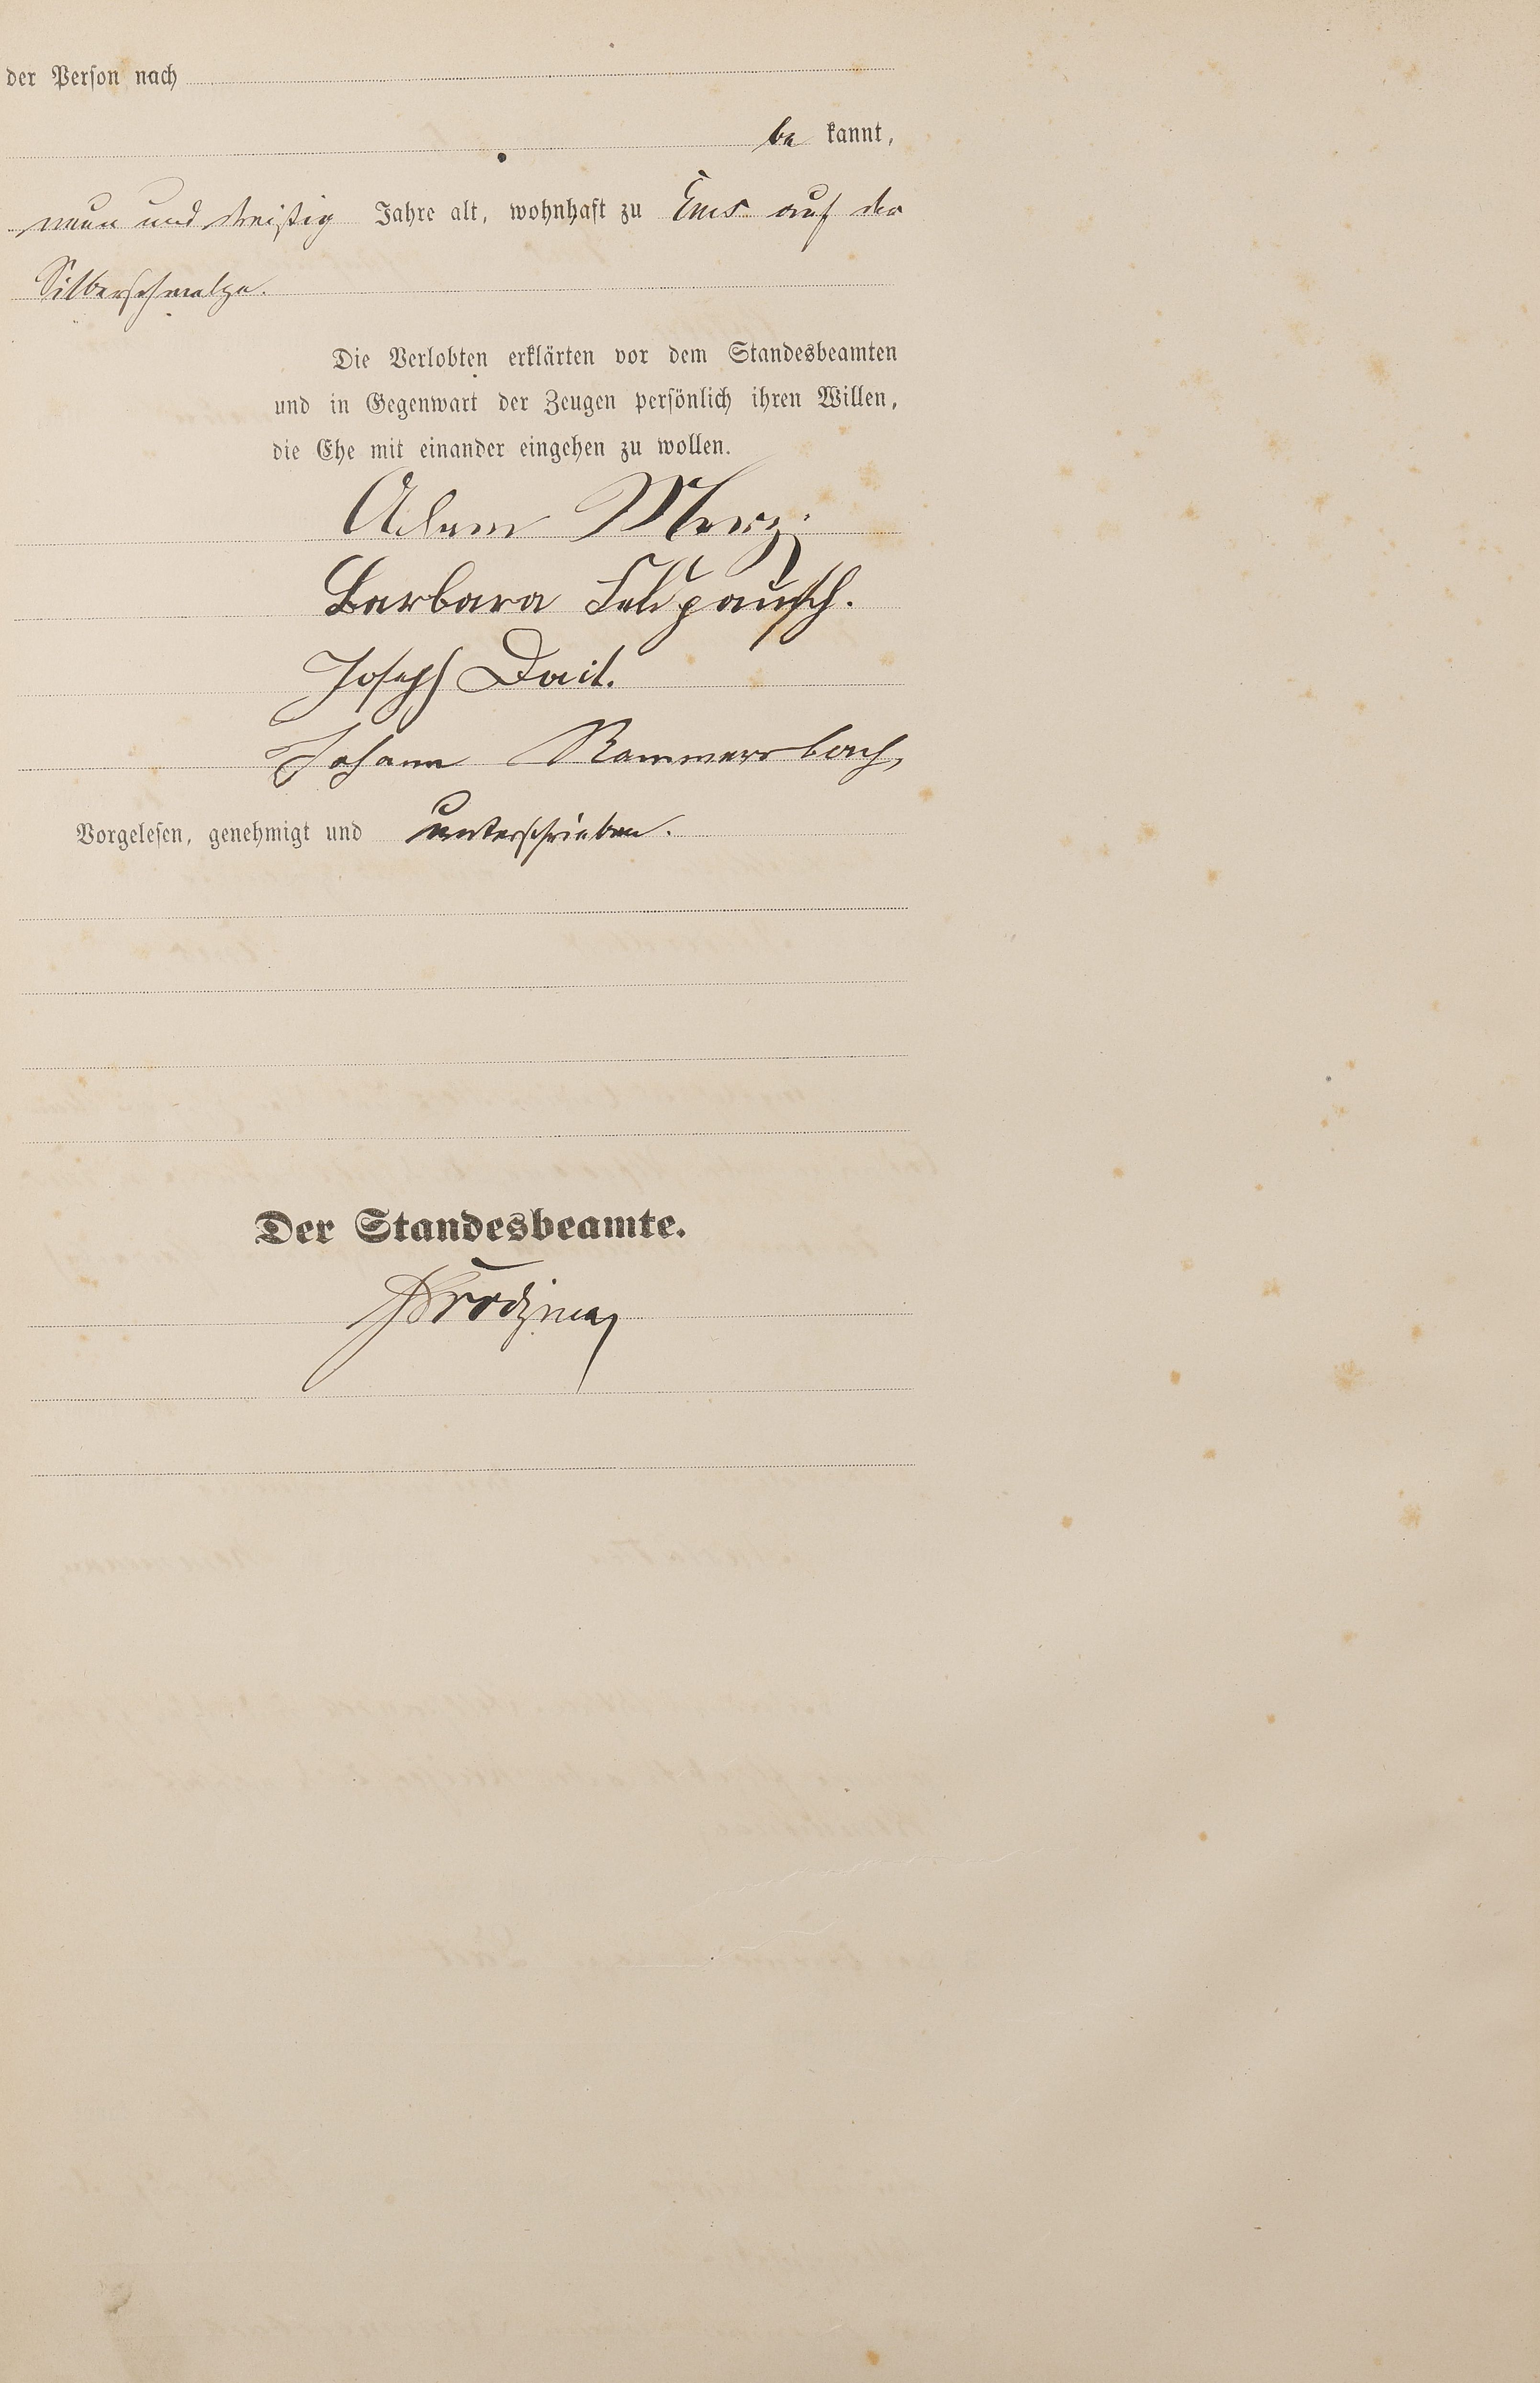 der Person nach
be kannt,
neun und dreißig Jahre alt, wohnhaft zu Ems auf der
Silberschmelze.
Die Verlobten erklärten vor dem Standesbeamten
und in Gegenwart der Zeugen persönlich ihren Willen,
die Ehe mit einander eingehen zu wollen.
Adam Merz
Barbara Feldpausch.
Joseph Dait.
Johann Rammersbach,
Vorgelesen, genehmigt und unterschrieben.
Der Standesbeamte.